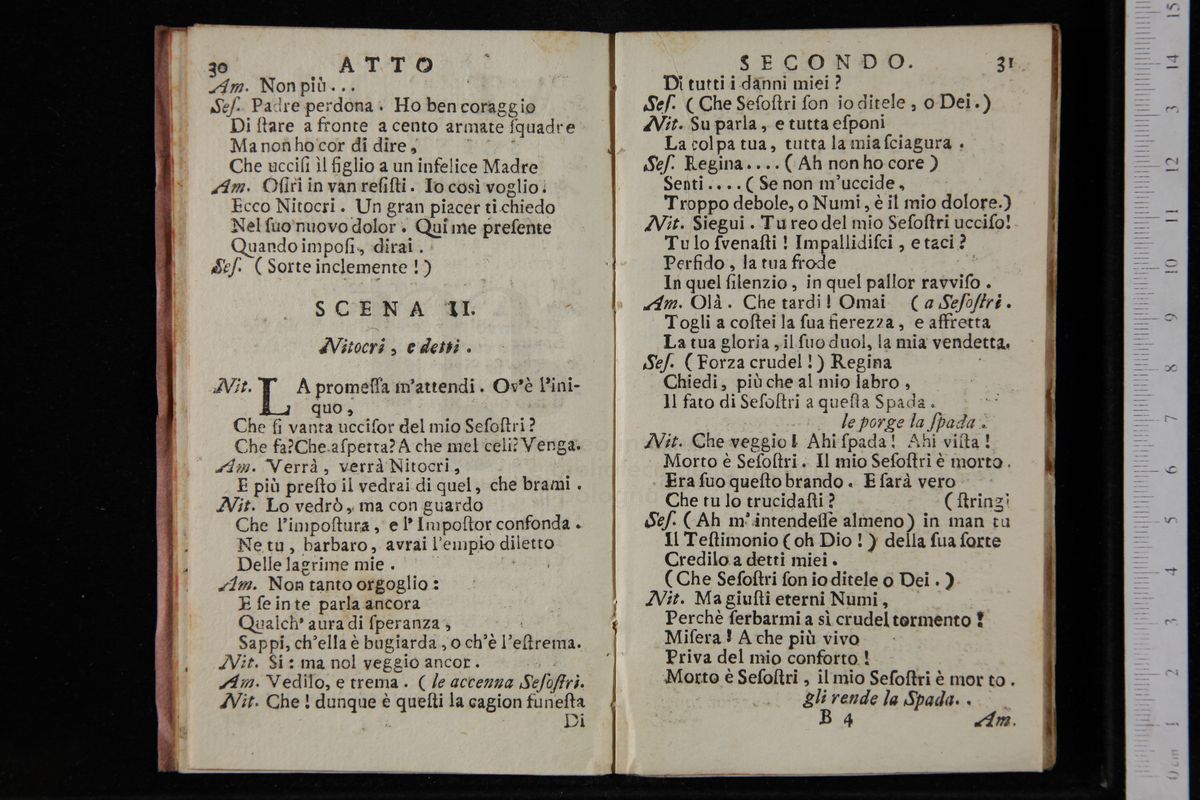 30 ATTO
Am. Non più...
Seſ. Padre perdona. Ho ben coraggio
Di ſtare a fronte a cento armate ſquadre
Ma non ho cor di dire,
Che ucciſi il figlio a un infelice Madre
Am. Oſiri in van reſiſti. Io così voglio.
Ecco Nitocri. Un gran piacer ti chiedo
Nel ſuo nuovo dolor. Quì me preſente
Quando impoſi, dirai.
Seſ. (Sorte inclemente!)
SCENA II.
Nitocri, e detti.
Nit. LA promeſſa m'attendi. Ov'è l'ini-
quo,
Che ſi vanta ucciſor del mio Seſoſtri?
Che fa? Che aſpetta? A che mel celi? Venga.
Am. Verrà, verrà Nitocri,
E più preſto il vedrai di quel, che brami.
Nit. Lo vedrò, ma con guardo
Che l'impoſtura, e l'Impoſtor confonda.
Ne tu, barbaro, avrai l'empio diletto
Delle lagrime mie.
Am. Non tanto orgoglio:
E ſe in te parla ancora
Qualch' aura di ſperanza,
Sappi, ch'ella è bugiarda, o ch'è l'eſtrema.
Nit. Si: ma nol veggio ancor.
Am. Vedilo, e trema. (le accenna Seſoſtri.
Nit. Che! dunque è queſti la cagion funeſta
Di
SECONDO. 31
Di tutti i danni miei?
Seſ. (Che Seſoſtri ſon io ditele, o Dei.)
Nit. Su parla, e tutta eſponi
La colpa tua, tutta la mia ſciagura.
Seſ. Regina.... (Ah non ho core)
Senti.... (Se non m'uccide,
Troppo debole, o Numi, è il mio dolore.)
Nit. Siegui. Tu reo del mio Seſoſtri ucciſo!
Tu lo ſvenaſti! Impallidiſci, e taci?
Perfido, la tua frode
In quel ſilenzio, in quel pallor ravviſo.
Am. Olà. Che tardi! Omai (a Seſoſtri.
Togli a coſtei la ſua fierezza, e affretta
La tua gloria, il ſuo duol, la mia vendetta.
Seſ. (Forza crudel!) Regina
Chiedi, più che al mio labro,
Il fato di Seſoſtri a queſta Spada.
le porge la ſpada.
Nit. Che veggio! Ahi ſpada! Ahi viſta!
Morto è Seſoſtri. Il mio Seſoſtri è morto.
Era ſuo queſto brando. E ſarà vero
Che tu lo trucidaſti? (ſtringi
Seſ. (Ah m'intendeſſe almeno) in man tu
Il Teſtimonio (oh Dio!) della ſua ſorte
Credilo a detti miei.
(Che Seſoſtri ſon io ditele o Dei.)
Nit. Ma giuſti eterni Numi,
Perchè ſerbarmi a sì crudel tormento?
Miſera! A che più vivo
Priva del mio conforto!
Morto è Seſoſtri, il mio Seſoſtri è mor to.
gli rende la Spada..
B 4 Am.
0 cm 1 2 3 4 5 6 7 8 9 10 11 12 13 14 15